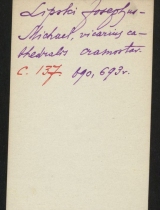 Lipski Josephus-
Michael, vicarius ca-
thedralis
C. 137. 690, 693v.